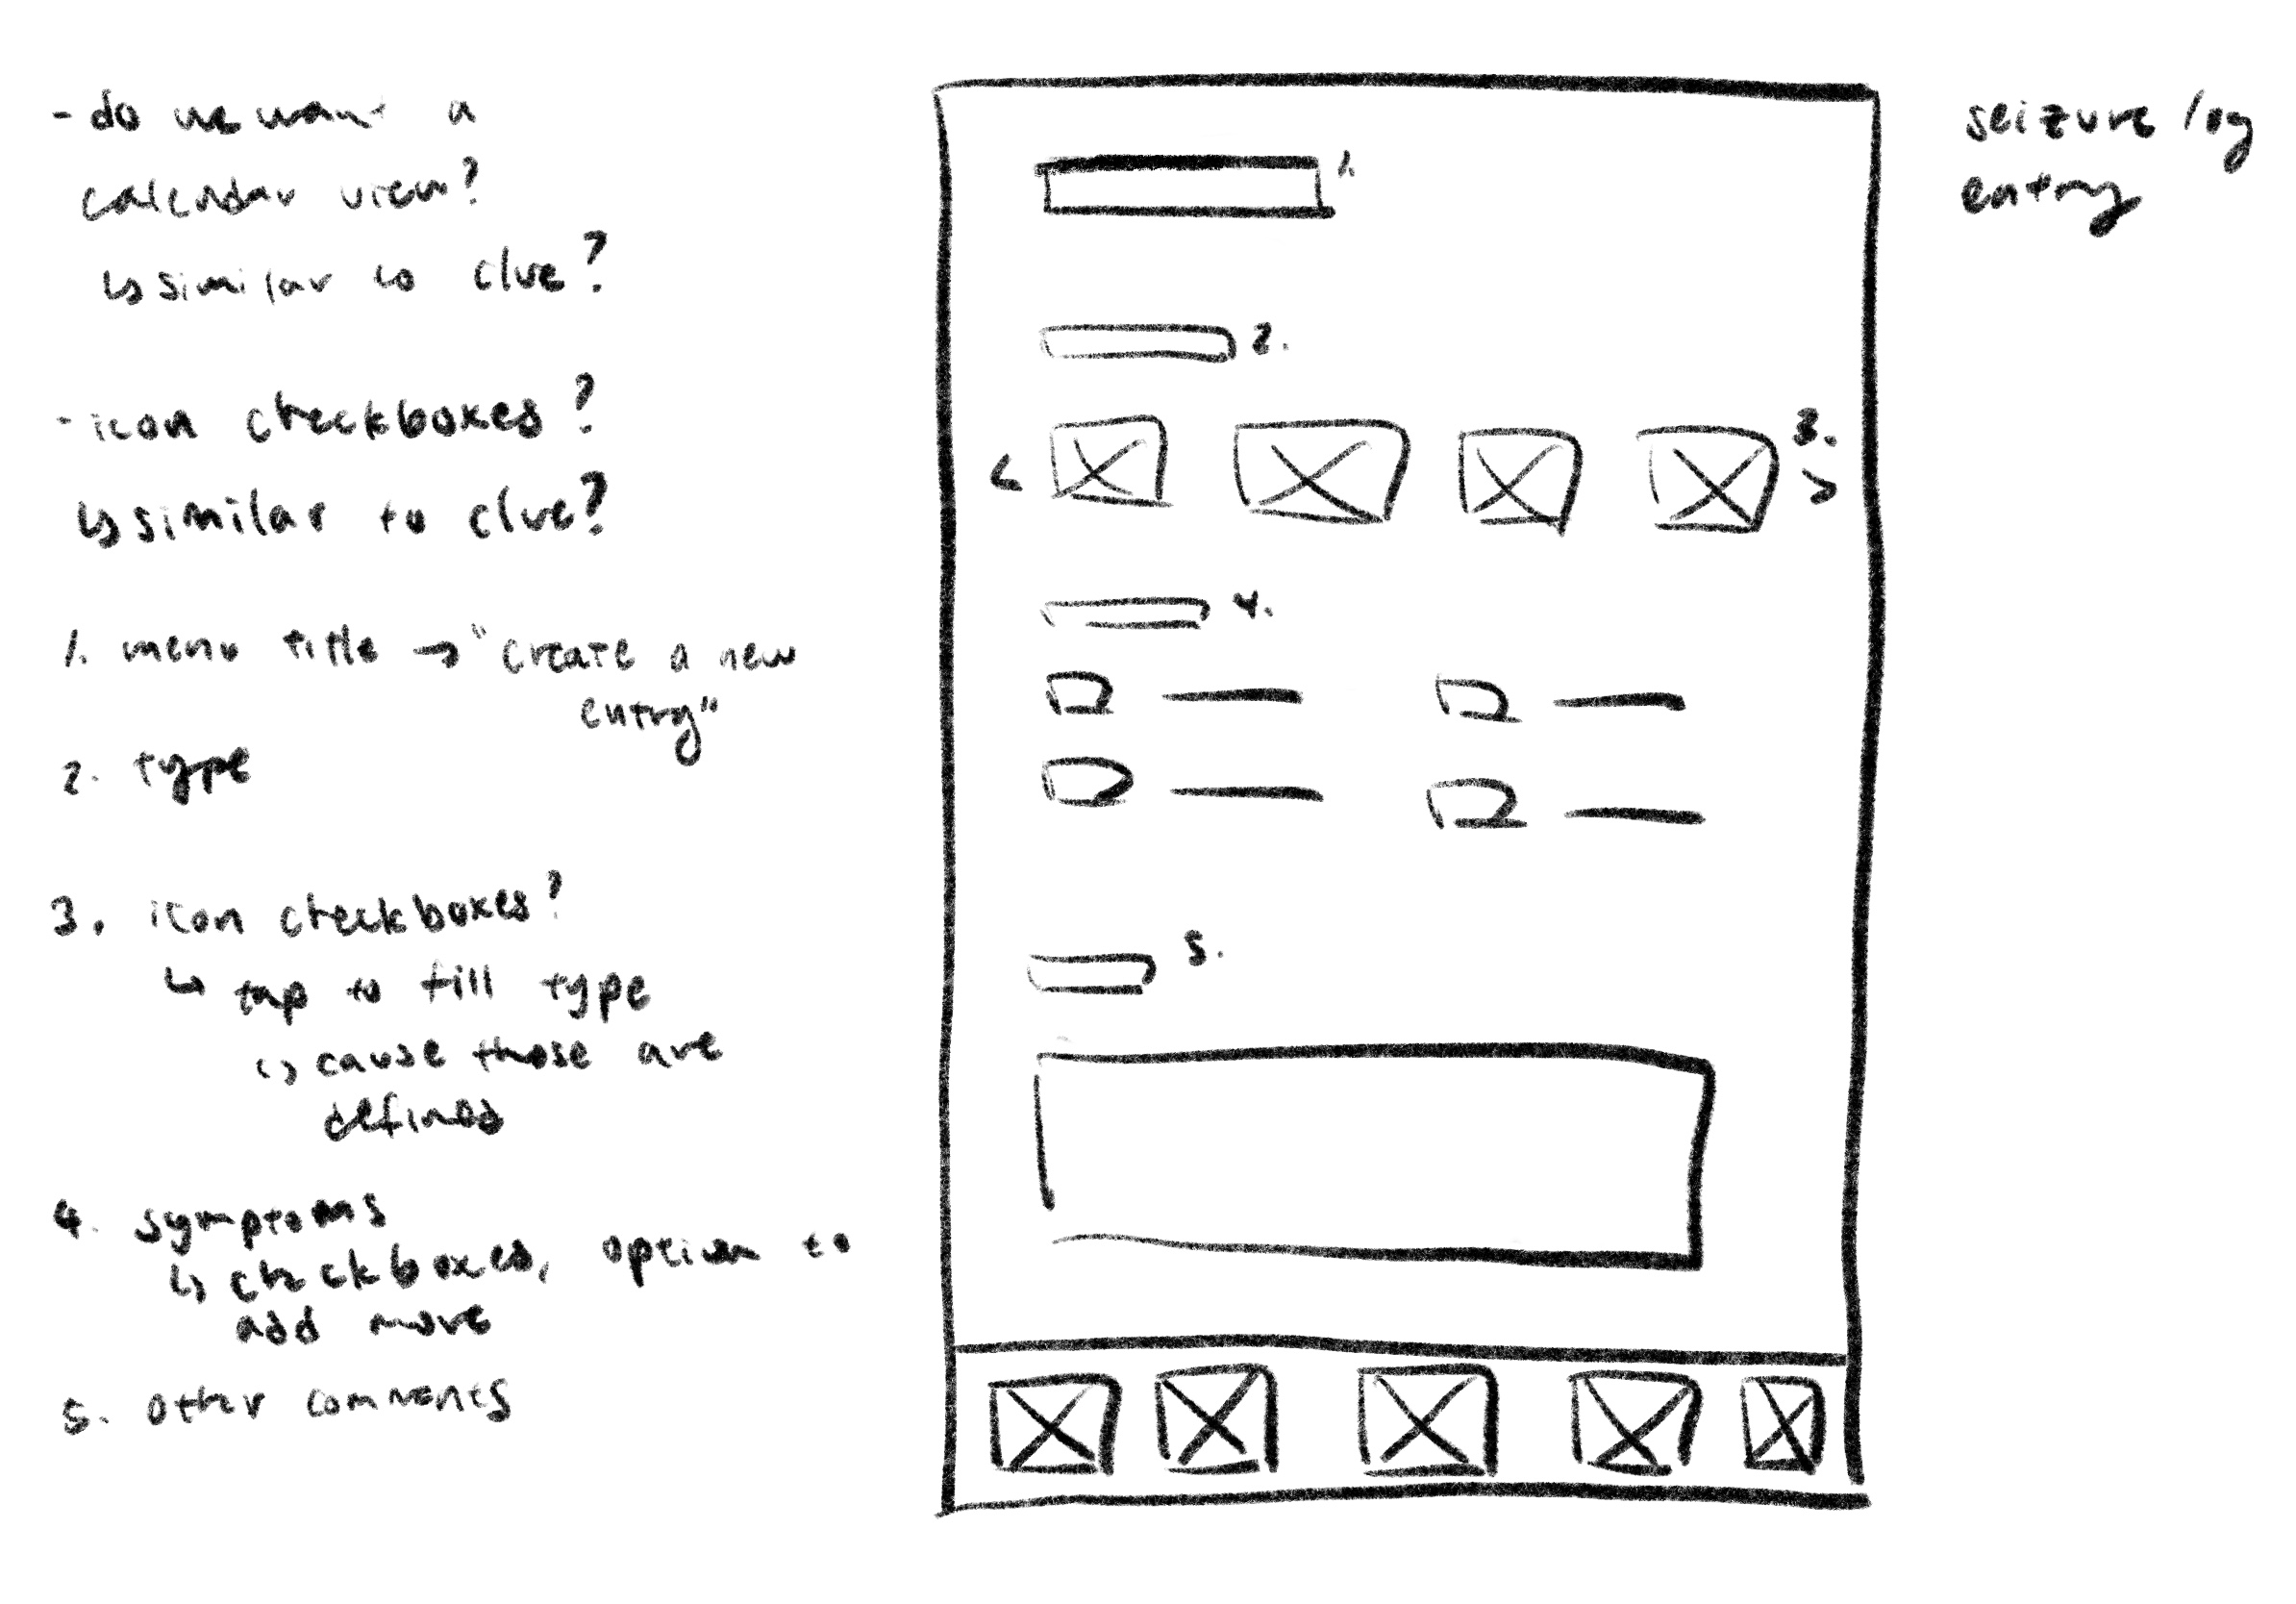 - do we want a
calendar view?
↳ similar to clue?
- icon checkboxes?
↳ similar to clue?
1. menu title → "create a new
entry"
2. type
3. icon checkboxes?
↳ tap to fill type
↳ cause those are
defined
4. symptoms
↳ checkboxes, option to
add more
5. other comments
1.
2.
3.
< >
4.
5.
seizure log
entry